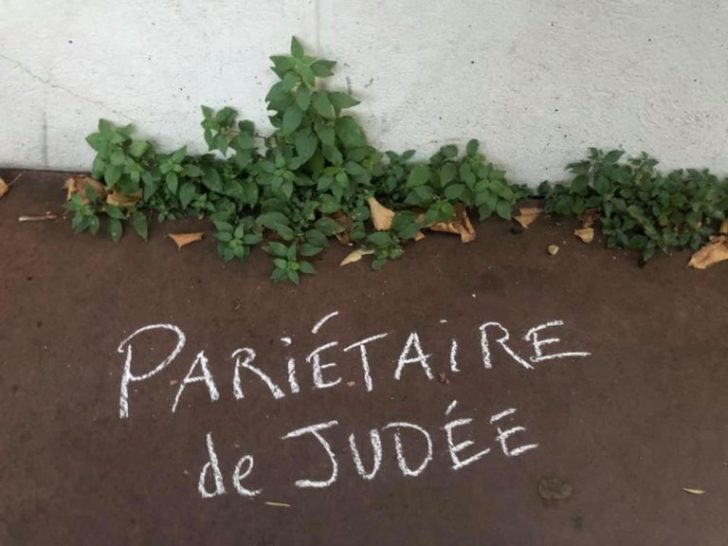 PARiÉTAiRE
de JUDÉE